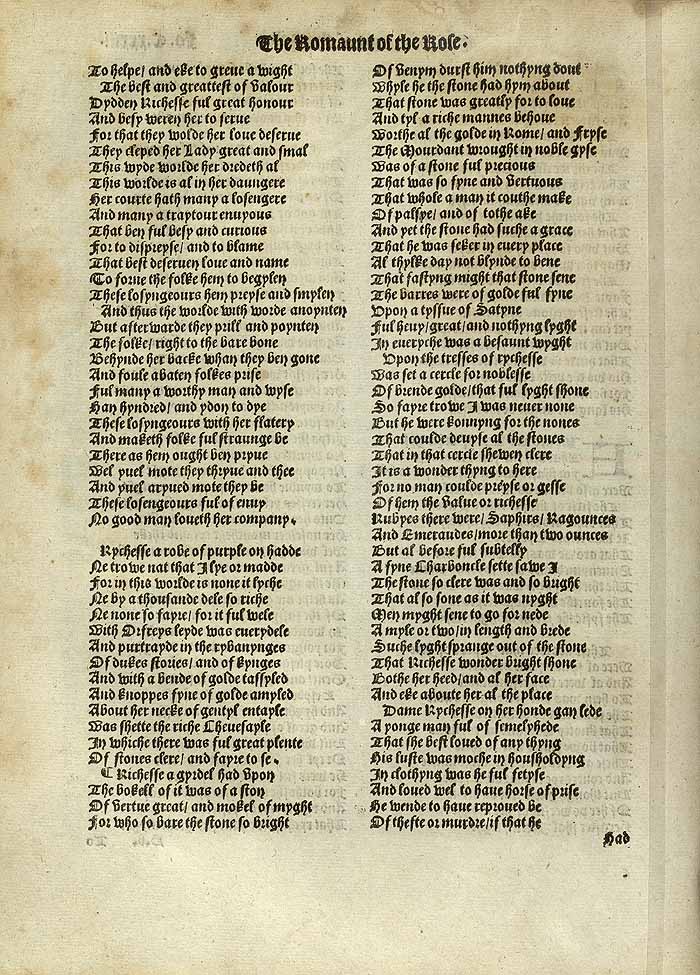 The Romaunt of the Rose.
To helpe/ and eke to greue a wight
The best and greattest of valour
Dydden Richesse ful great honour
And besy weren her to serue
For that they wolde her loue deserue
They cleped her Lady great and smal
This wyde worlde her dredeth al
This worlde is al in her daungere
Her courte hath many a losengere
And many a traytour enuyous
That ben ful besy and curious
For to dispreyse/ and to blame
That best deseruen loue and name
To forne the folke hem to begylen
These losyngeours hem preyse and smylen
And thus the worlde with worde anoynten
But afterwarde they prill and poynten
The folke/ right to the bare bone
Behynde her backe whan they ben gone
And foule abaten folkes prise
Ful many a worthy man and wyse
Han hyndred/ and ydon to dye
These losyngeours with her flatery
And maketh folke ful straunge be
There as hem ought ben pryue
Wel yuel mote they thryue and thee
And yuel aryued mote they be
These losengeours ful of enuy
No good man loueth her company.
Rychesse a robe of purple on hadde
Ne trowe nat that I lye or madde
For in this worlde is none it lyche
Ne by a thousande dele so riche
Ne none so fayre/ for it ful wele
With Orfreys leyde was euerydele
And purtrayde in the rybanynges
Of dukes stories/ and of kynges
And with a bende of golde tassyled
And knoppes fyne of golde amyled
About her necke of gentyl entayle
Was shette the riche Cheuesayle
In whiche there was ful great plente
Of stones clere/ and fayre to se.
Richesse a gyrdel had vpon
The bokell of it was of a ston
Of vertue great/ and mokel of myght
For who so bare the stone so bright
Of venym durst him nothyng dout
Whyle he the stone had hym about
That stone was greatly for to loue
And tyl a riche mannes behoue
Worthe al the golde in Rome/ and Fryse
The Mourdant wrought in noble gyse
Was of a stone ful precious
That was so fyne and vertuous
That whole a man it couthe make
Of palsye/ and of tothe ake
And yet the stone had suche a grace
That he was seker in euery place
Al thylke day not blynde to bene
That fastyng might that stone sene
The barres were of golde ful fyne
Vpon a tyssue of Satyne
Ful heuy/ great/ and nothyng lyght
In eueryche was a besaunt wyght
Vpon the tresses of rychesse
Was set a cercle for noblesse
Of brende golde/ that ful lyght shone
So fayre trowe I was neuer none
But he were konnyng for the nones
That coulde deuyse al the stones
That in that cercle shewen clere
It is a wonder thyng to here
For no man coulde preyse or gesse
Of hem the value or richesse
Rubyes there were/ Saphirs/ Ragounces
And Emeraudes/ more than two ounces
But al before ful subtelly
A fyne Charboncle sette sawe I
The stone so clere was and so bright
That al so sone as it was nyght
Men myght sene to go for nede
A myle or two/ in length and brede
Suche lyght sprange out of the stone
That Richesse wonder bright shone
Bothe her heed/ and al her face
And eke aboute her al the place
Dame Rychesse on her honde gan lede
A yonge man ful of semelyhede
That she best loued of any thyng
His luste was moche in housholdyng
In clothyng was he ful fetyse
And loued wel to haue horse of prise
He wende to haue reproued be
Of thefte or murdre/ if that he
Had